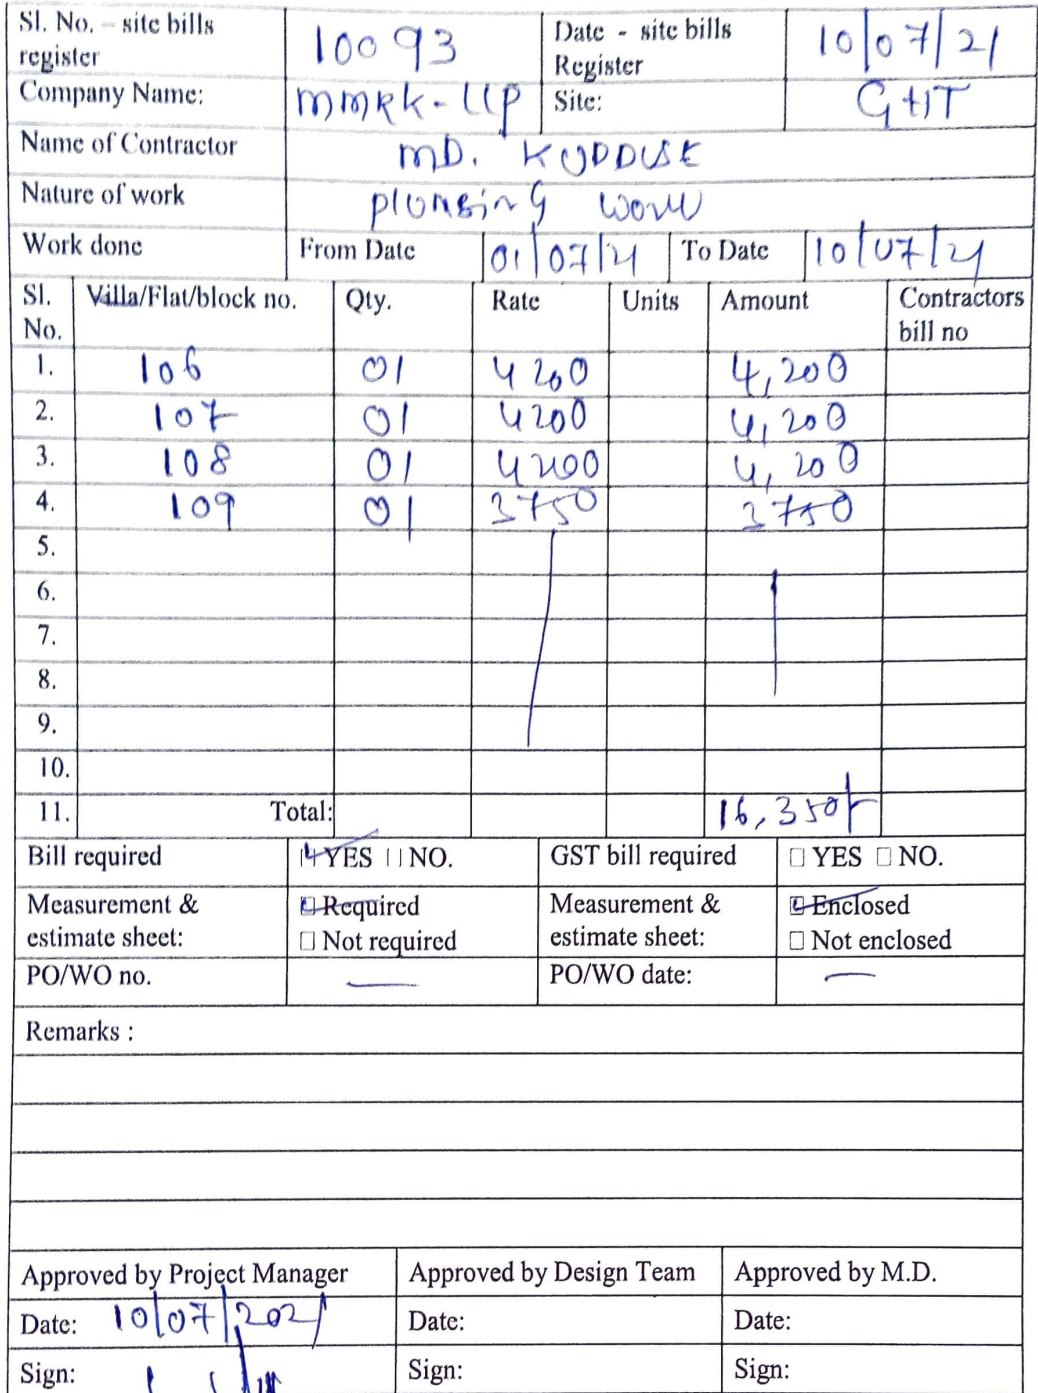 Sl. No. – site bills register 10093 Date - site bills Register 10/07/21
Company Name: MMRK-LLP Site: GHT
Name of Contractor MD. KUDDUSE
Nature of work plumbing work
Work done From Date 01/07/21 To Date 10/07/21
Sl. No. Villa/Flat/block no. Qty. Rate Units Amount Contractors bill no
1. 106 01 4200 4,200
2. 107 01 4200 4,200
3. 108 01 4200 4,200
4. 109 01 3750 3750
5.
6.
7.
8.
9.
10.
11. Total: 16,350/-
Bill required YES NO. GST bill required YES NO.
Measurement & estimate sheet: Required Not required Measurement & estimate sheet: Enclosed Not enclosed
PO/WO no. — PO/WO date: —
Remarks :
Approved by Project Manager Approved by Design Team Approved by M.D.
Date: 10/07/2021 Date: Date:
Sign: Sign: Sign: